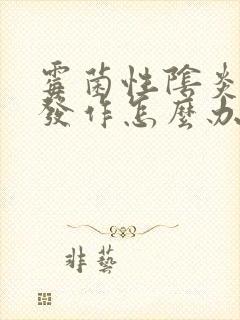 霉菌性陰炎
發作怎麼办
非藝